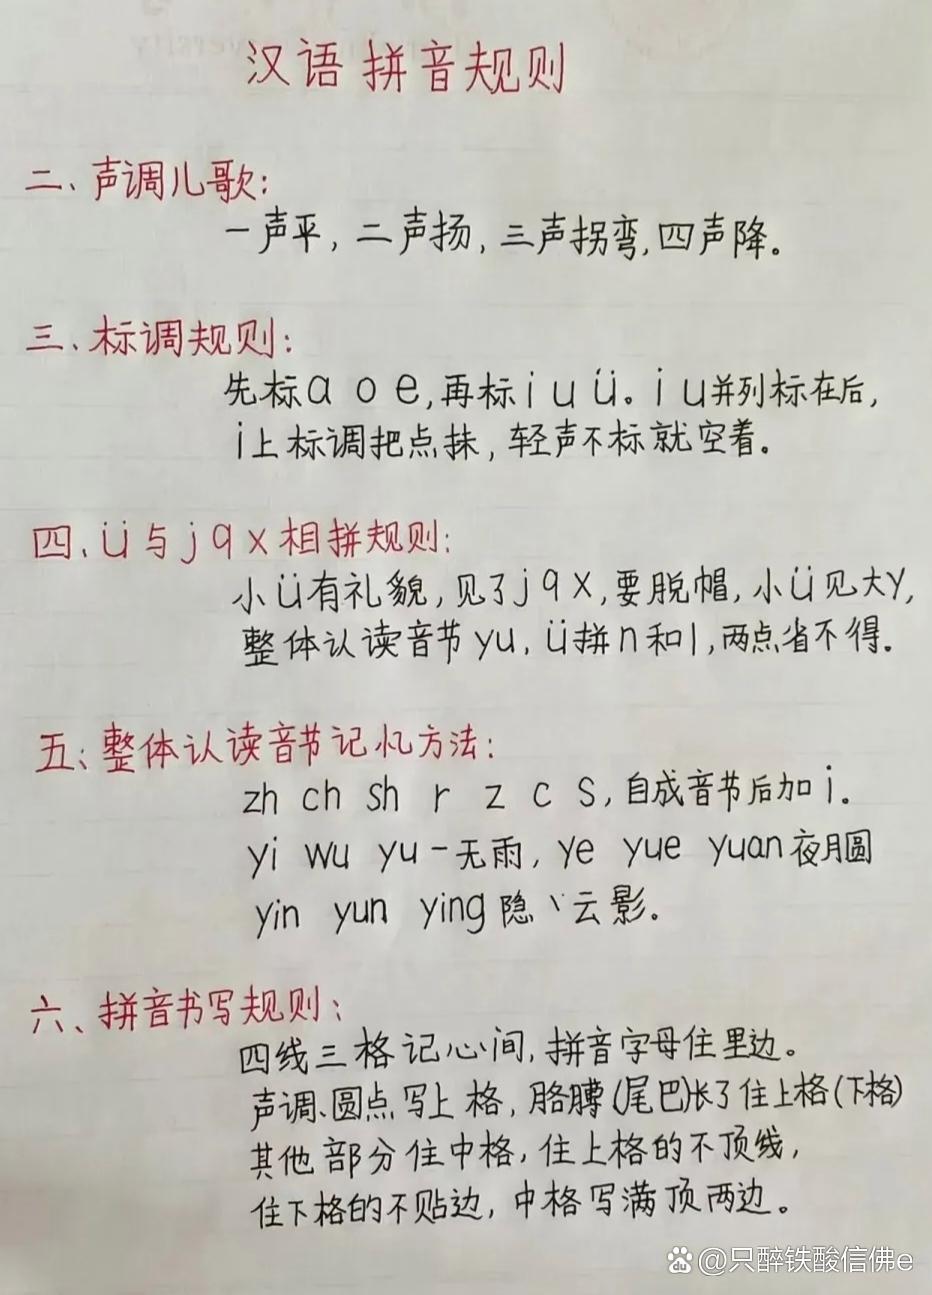 汉语拼音规则
二、声调儿歌:
一声平,二声扬,三声拐弯,四声降。
三、标调规则:
先标ɑ o e,再标i u ü。i u并列标在后,
i上标调把点抹,轻声不标就空着。
四、ü与j q x相拼规则:
小ü有礼貌,见了j q x,要脱帽,小ü见大y,
整体认读音节yu,ü拼n和l,两点省不得。
五、整体认读音节记忆方法:
zh ch sh r z c s,自成音节后加i。
yi wu yu一无雨,ye yue yuan夜月圆
yin yun ying隐丶云影。
六、拼音书写规则:
四线三格记心间,拼音字母住里边。
声调、圆点写上格,胳膊(尾巴)长了住上格(下格)
其他部分住中格,住上格的不顶线,
住下格的不贴边,中格写满顶两边。
@只醉铁酸信佛e